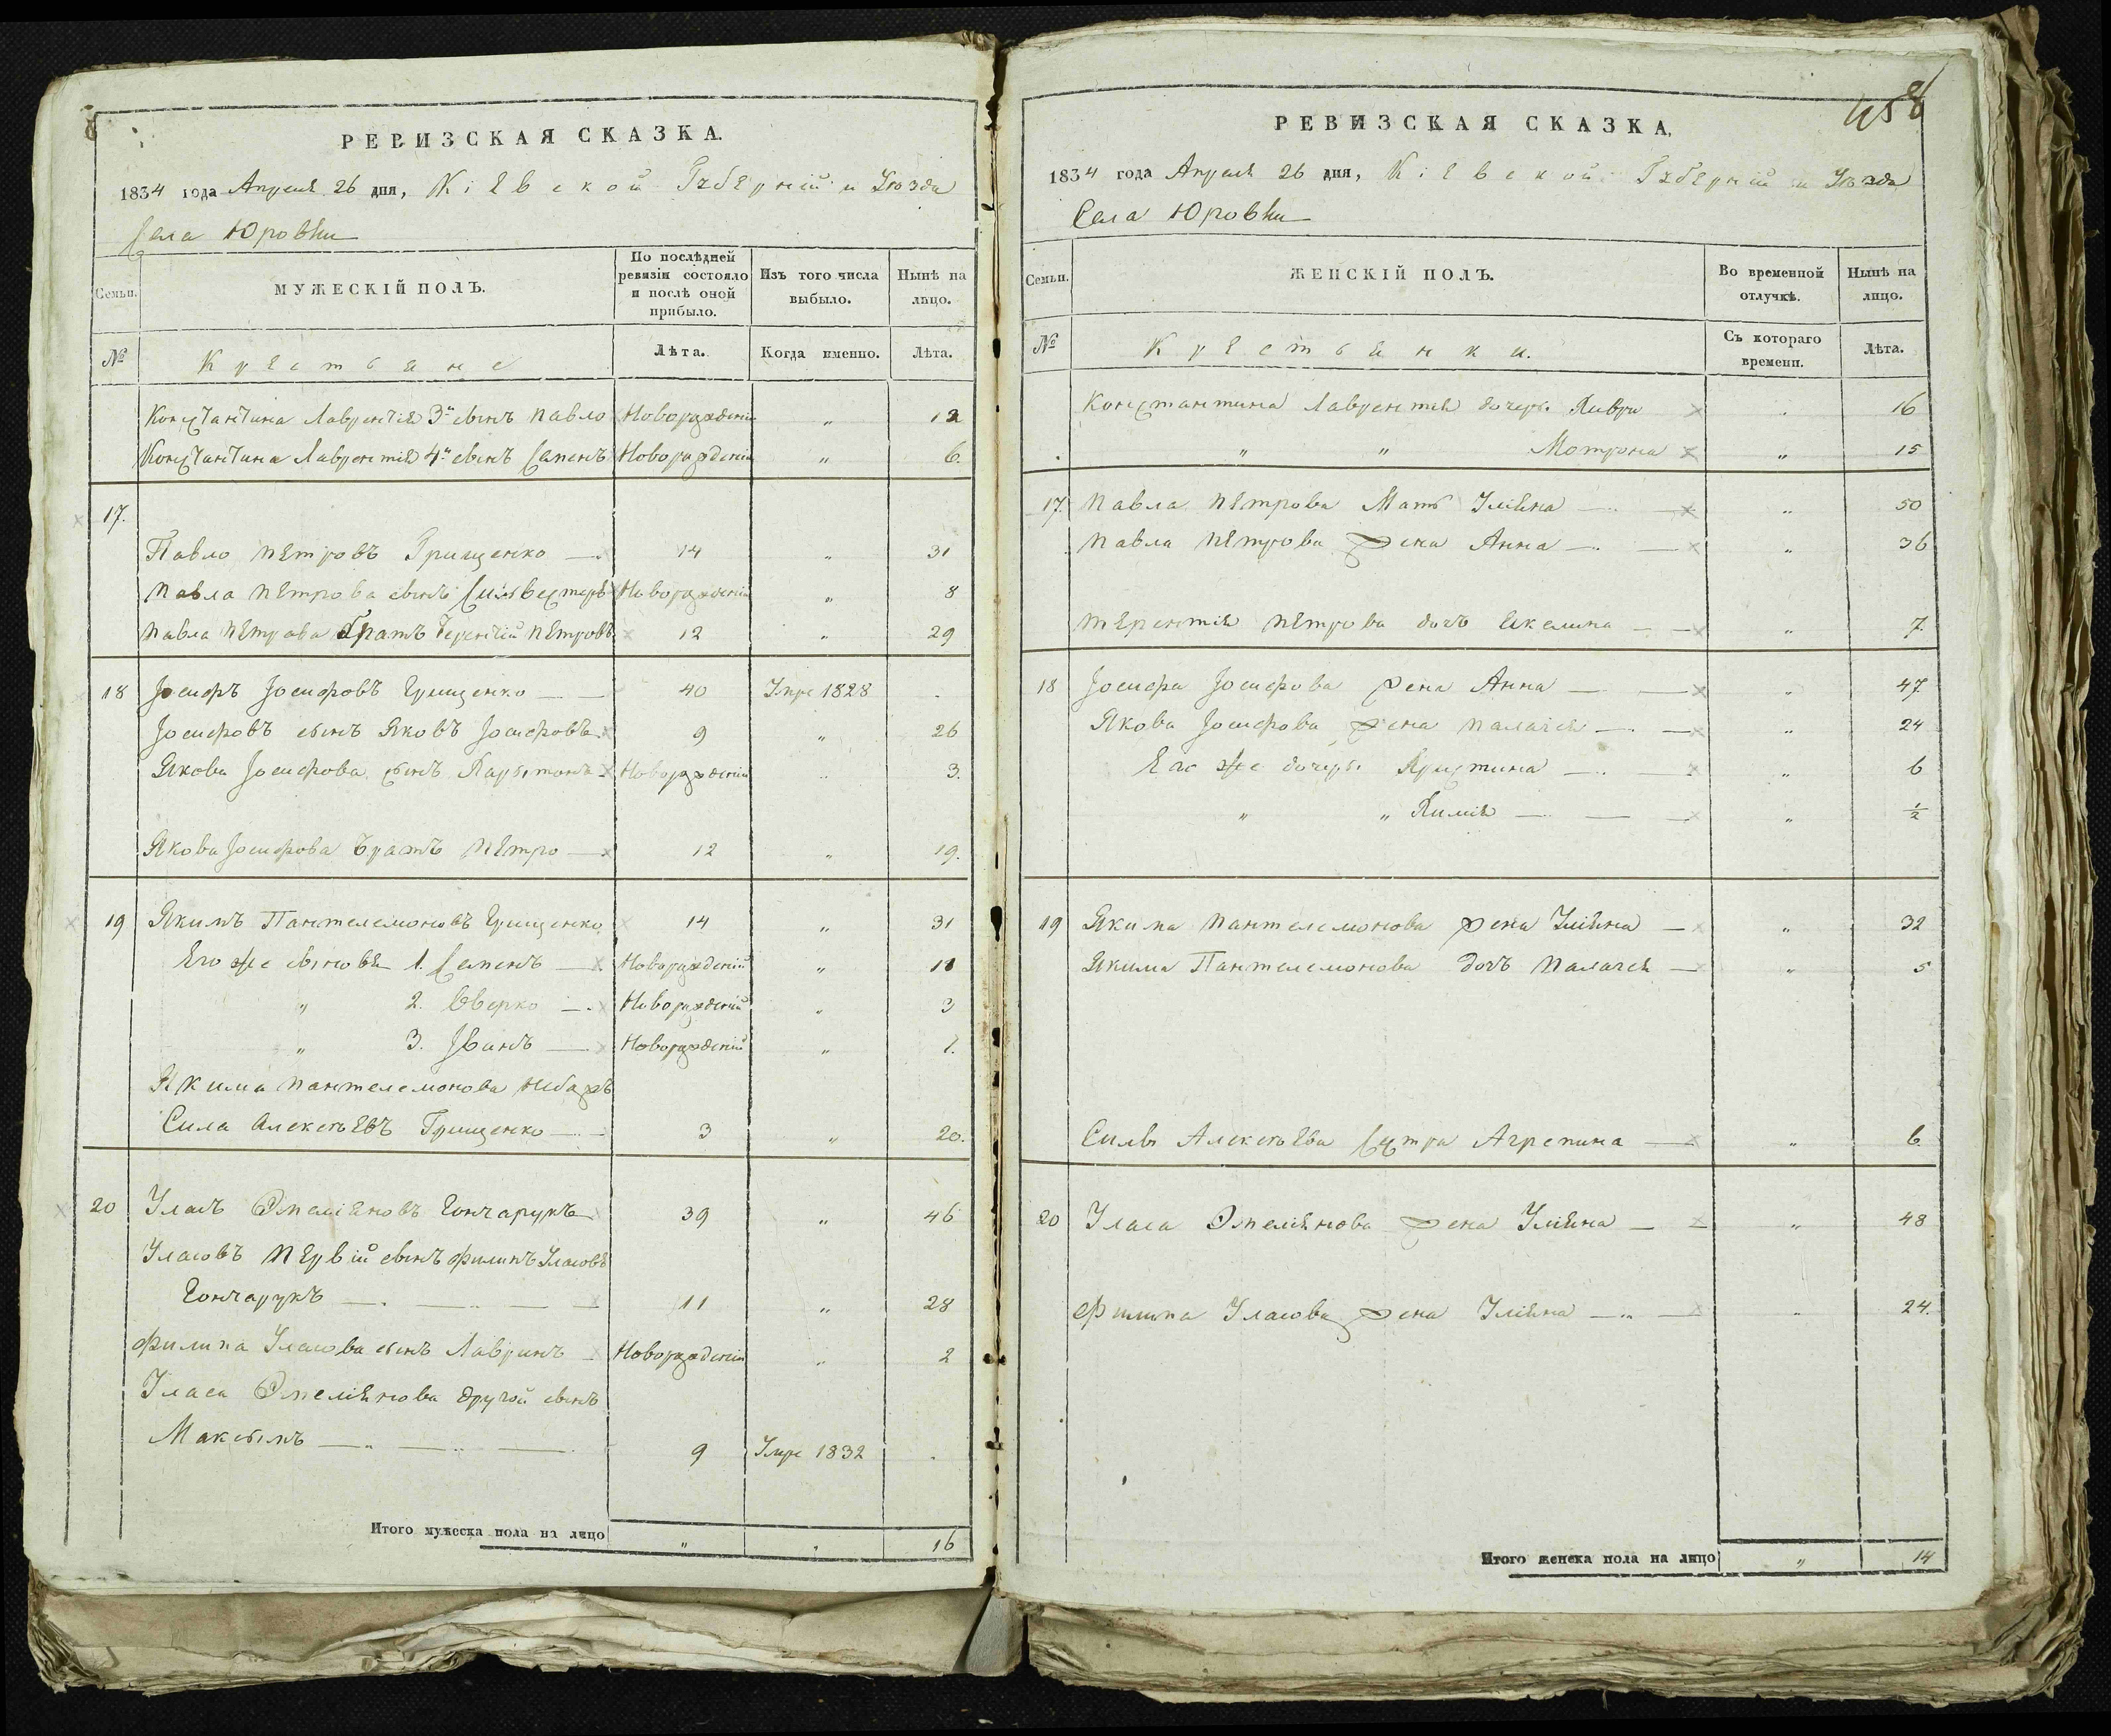 РЕВИЗСКАЯ СКАЗКА.
1834 года Апреля 26 дня, Кіевской Губерніи и Уѣзда
Села Юровки
Семьи.
МУЖЕСКІЙ ПОЛЪ.
По послѣдней ревизіи состояло и послѣ оной прибыло.
Изъ того числа выбыло.
Нынѣ на лицо.
№
Крестьяне
Лѣта.
Когда именно.
Лѣта.
Константина Лаврентія 3й сынъ Павло Новорожденій „ 12
Константина Лаврентія 4й сынъ Семенъ Новорожденій „ 6.
17.
Павло Петровъ Грищенко — 14 „ 31
Павла Петрова сынъ Сильвестеръ Новорожденій „ 8
Павла Петрова Братъ Терентій Петровъ 12 „ 29
18 Іосифъ Іосифовъ Грищенко — 40 Умре 1828 .
Іосифовъ сынъ Яковъ Іосифовъ 9 „ 26
Якова Іосифова сынъ Парѳтонъ Новорожденій „ 3.
Якова Іосифова Братъ Петро — 12 „ 19.
19 Якимъ Пантелемоновъ Грищенко 14 „ 31
Его же сыновья 1. Семенъ — Новорожденій „ 11
„ 2. Оверко — Новорожденій „ 3
„ 3. Иванъ — Новорожденій „ 1.
Якима Пантелемонова Небожъ
Сила Алексѣевъ Грищенко — 3 „ 20.
20 Уласъ Омеліяновъ Гончарукъ 39 „ 46
Уласовъ Первій сынъ Филипъ Уласовъ
Гончарукъ — 11 „ 28
Филипа Уласова сынъ Лавринъ Новорожденій „ 2
Уласа Омеліянова другой сынъ
Максымъ — 9 Умре 1832 .
Итого мужеска пола на лицо „ „ 16
458
РЕВИЗСКАЯ СКАЗКА.
1834 года Апреля 26 дня, Кіевской Губерніи и Уѣзда
Села Юровки
Семьи.
ЖЕНСКІЙ ПОЛЪ.
Во временной отлучкѣ.
Нынѣ на лицо.
№
Крестьянки.
Съ котораго времени.
Лѣта.
Константина Лаврентія дочери 16
„ „ Мотрона „ 15
17. Павла Петрова Мать Уліяна — „ 50
Павла Петрова жена Анна — „ 36
Терентія Петрова дочъ — „ 7.
18 Іосифа Іосифова жена Анна — „ 47
Якова Іосифова жена Палагея — „ 24
Его же дочери Христина — „ 6
„ „ Химія — „ 1/2
19 Якима Пантелемонова жена Уліяна — „ 32
Якима Пантелемонова дочъ Палагея — „ 5
Силы Алексѣева Сестра Агрепина — „ 6.
20 Уласа Омеліянова жена Уліяна — „ 48
Филипа Уласова жена Уліяна — „ 24.
Итого женска пола на лицо „ 14